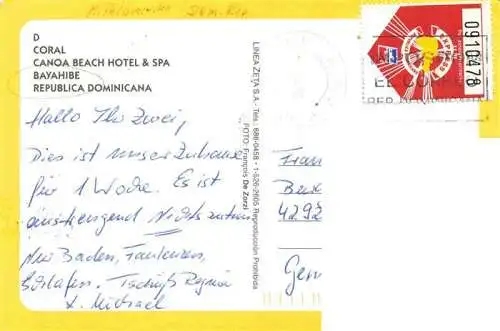 Dom. Rep
D
CORAL
CANOA BEACH HOTEL & SPA
BAYAHIBE
REPUBLICA DOMINICANA
Hallo Ihr Zwei,
Dies ist unser Zuhause
für 1 Woche. Es ist
anstrengend Nichts zu tun
Nur Baden, Faulenzen,
Schlafen. Tschüß Regina
u. Michael
LINEA ZETA S.A.- Tels.: 688-0458 - 1-526-2605 Reproducción Prohibida
FOTO: François De Zorzi
EXPRESS
0910478
Fran
Bux
4292
Germ